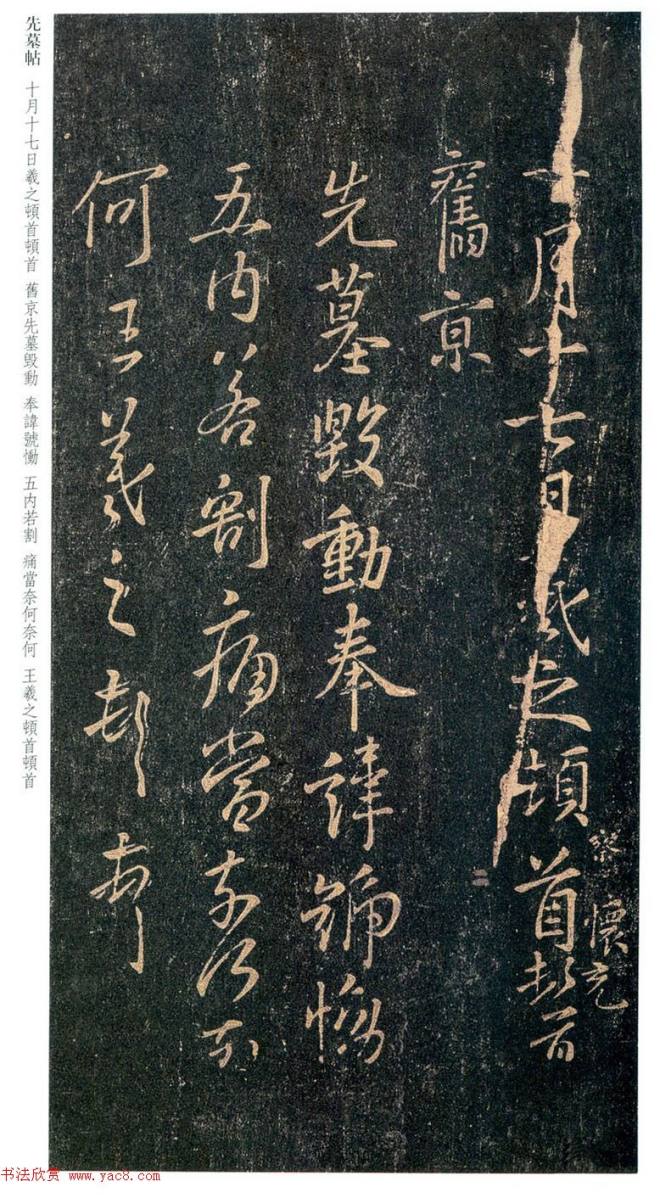 察 懷充
十月十七日羲之頓首頓首
舊京
先墓毀動奉諱號慟
五内若割痛當奈何奈
何王羲之頓首頓首
先墓帖 十月十七日羲之頓首頓首 舊京先墓毀動 奉諱號慟 五内若割 痛當奈何奈何 王羲之頓首頓首
书法欣赏 www.yac8.com